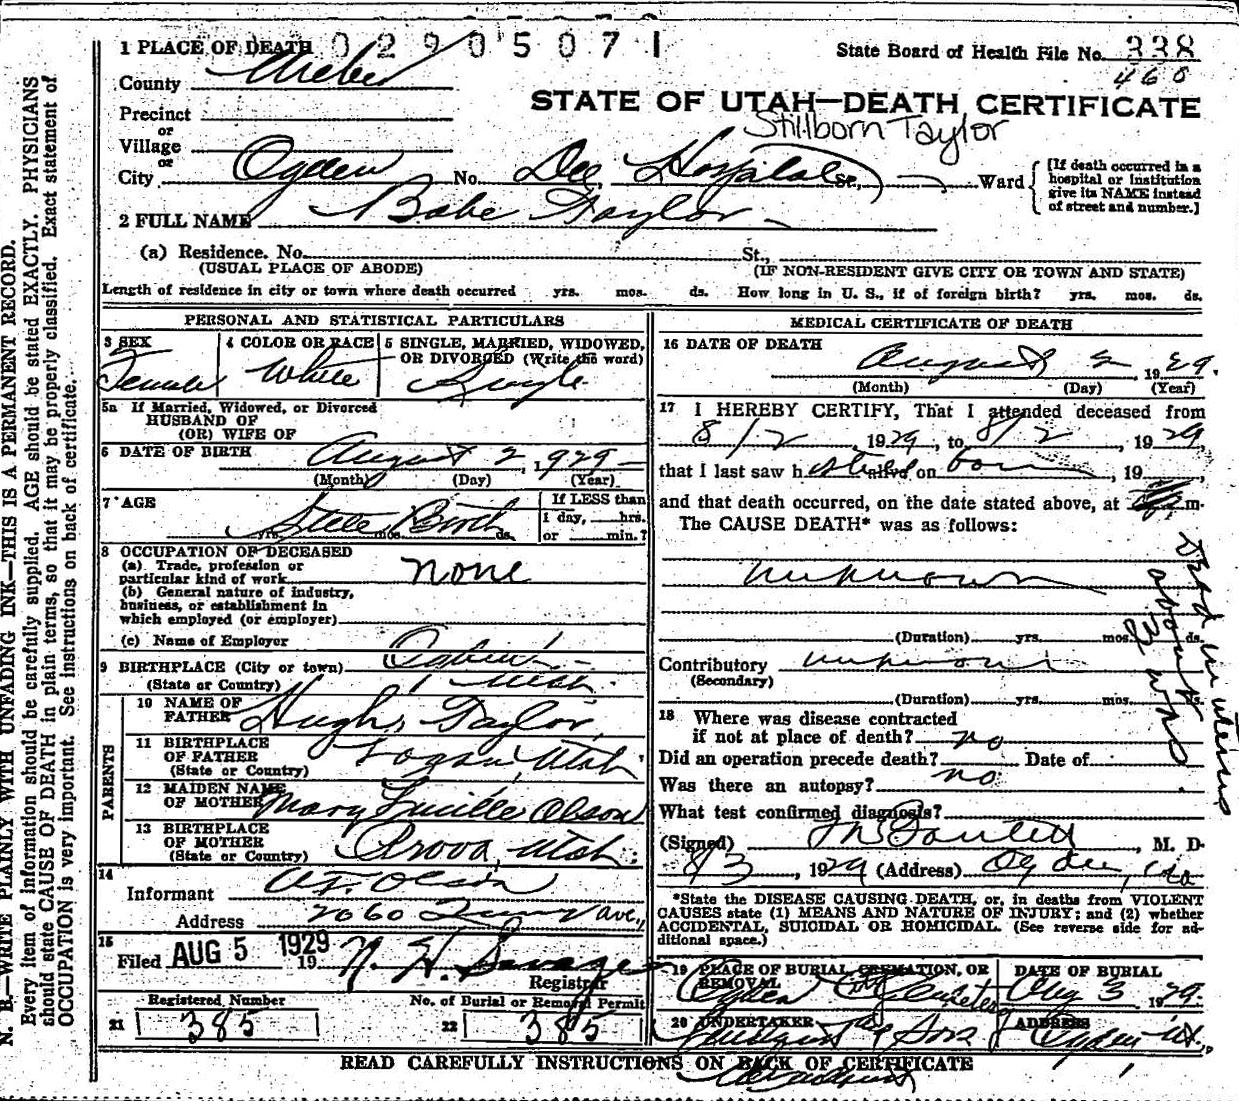 1 PLACE OF DEATH 0 2 9 0 5 0 7 1 State Board of Health File No. 338
County Weber 460
STATE OF UTAH—DEATH CERTIFICATE
Precinct
or
Stillborn Taylor
Village
or
City Ogden No. Dee Hospital St., Ward
[If death occurred in a
hospital or institution
give its NAME instead
of street and number.]
2 FULL NAME Babe Taylor
(a) Residence. No. St.,
(USUAL PLACE OF ABODE) (IF NON-RESIDENT GIVE CITY OR TOWN AND STATE)
Length of residence in city or town where death occurred yrs. mos. ds. How long in U. S., if of foreign birth? yrs. mos. ds.
PERSONAL AND STATISTICAL PARTICULARS
3 SEX 4 COLOR OR RACE 5 SINGLE, MARRIED, WIDOWED,
OR DIVORCED (Write the word)
Female White Single
5a If Married, Widowed, or Divorced
HUSBAND OF
(OR) WIFE OF
6 DATE OF BIRTH August 2 1929
(Month) (Day) (Year)
7 AGE If LESS than
Still Birth 1 day, hrs.
yrs. mos. ds. or min.?
8 OCCUPATION OF DECEASED
(a) Trade, profession or
particular kind of work none
(b) General nature of industry,
business, or establishment in
which employed (or employer)
(c) Name of Employer
9 BIRTHPLACE (City or town) Ogden
(State or Country) Utah
PARENTS
10 NAME OF
FATHER Hugh Taylor
11 BIRTHPLACE
OF FATHER Logan, Utah
(State or Country)
12 MAIDEN NAME
OF MOTHER Mary Lucille Olson
13 BIRTHPLACE
OF MOTHER Provo, Utah
(State or Country)
14
Informant Olson
Address 2060 ave.,
15
Filed AUG 5 1929 19 N. H. Savage
Registrar
Registered Number No. of Burial or Removal Permit
21 385 22 385
MEDICAL CERTIFICATE OF DEATH
16 DATE OF DEATH
August 2, 1929.
(Month) (Day) (Year)
17 I HEREBY CERTIFY, That I attended deceased from
8/2, 1929, to 8/2, 1929,
that I last saw h still alive on born, 19
and that death occurred, on the date stated above, at m.
The CAUSE DEATH* was as follows:
unknown
(Duration) yrs. mos. ds.
Contributory unknown
(Secondary)
(Duration) yrs. mos. ds.
Dead in uterus
about
3 wks
18 Where was disease contracted
if not at place of death?
Did an operation precede death? no Date of
Was there an autopsy? no
What test confirmed diagnosis?
(Signed) M. D.
8/3, 1929 (Address) Ogden,
*State the DISEASE CAUSING DEATH, or, in deaths from VIOLENT
CAUSES state (1) MEANS AND NATURE OF INJURY; and (2) whether
ACCIDENTAL, SUICIDAL OR HOMICIDAL. (See reverse side for ad-
ditional space.)
19 PLACE OF BURIAL, CREMATION, OR
REMOVAL DATE OF BURIAL
Ogden City Cemetery Aug 3 1929.
20 UNDERTAKER ADDRESS
& Sons Ogden, Ut.,
READ CAREFULLY INSTRUCTIONS ON BACK OF CERTIFICATE
N. B.—WRITE PLAINLY WITH UNFADING INK—THIS IS A PERMANENT RECORD.
Every item of information should be carefully supplied. AGE should be stated EXACTLY. PHYSICIANS
should state CAUSE OF DEATH in plain terms, so that it may be properly classified. Exact statement of
OCCUPATION is very important. See instructions on back of certificate.